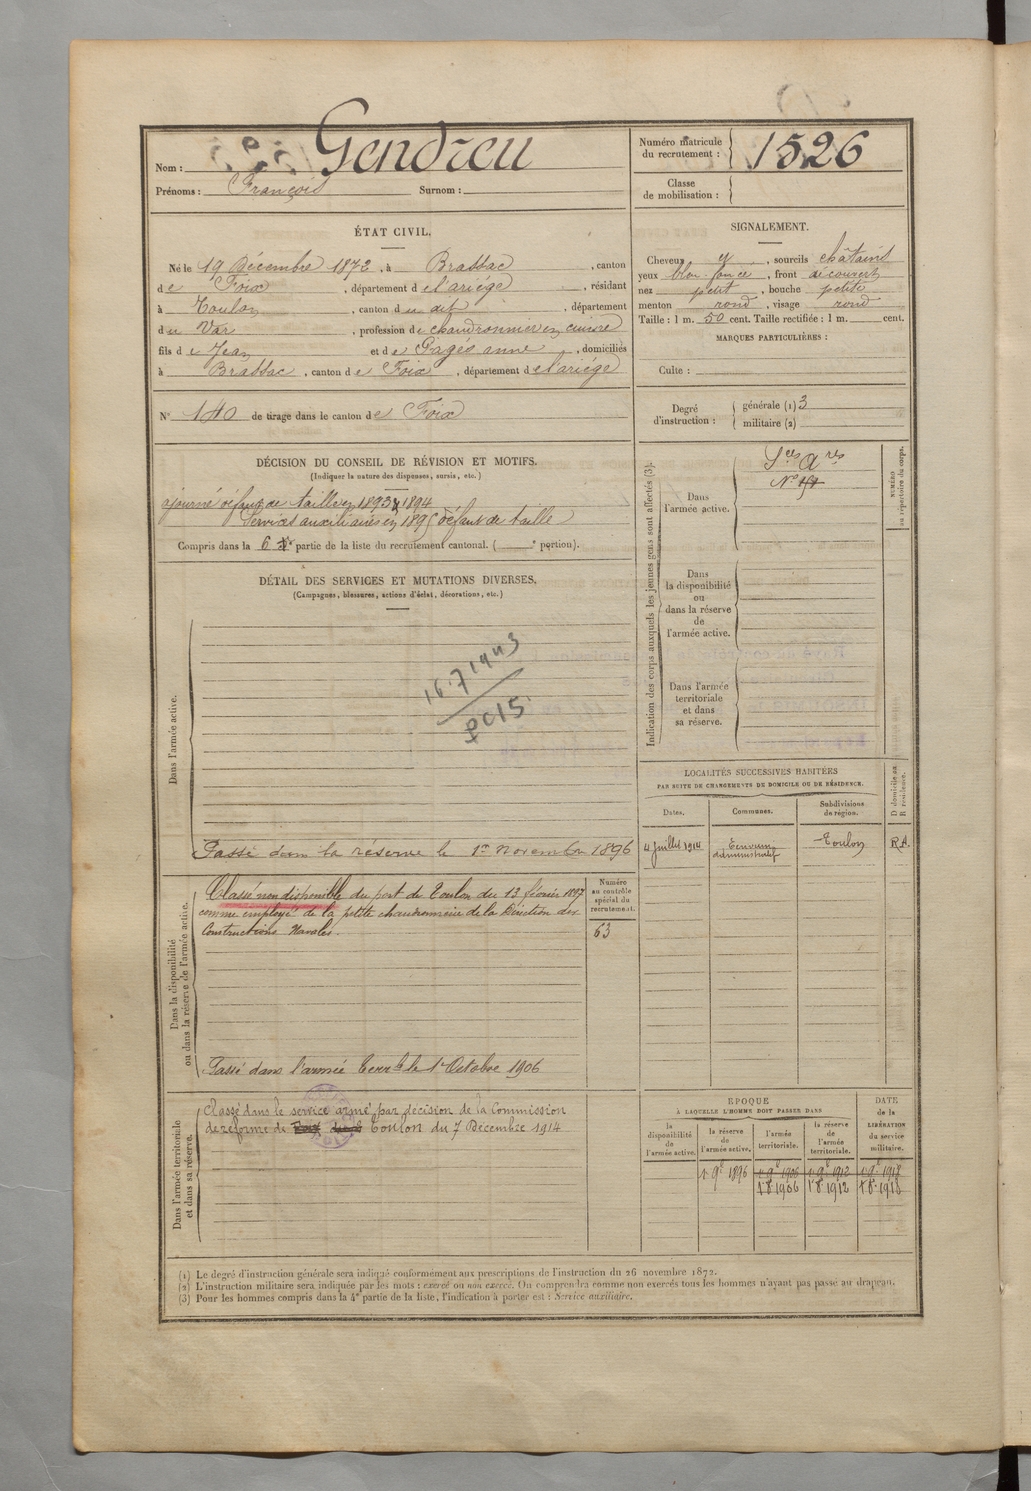 Nom : Gendreu
Prénoms : François Surnom :
Numéro matricule du recrutement : 1526
Classe de mobilisation :
ÉTAT CIVIL.
Né le 19 Décembre 1872, à Brassac, canton
de Foix, département de l'ariége, résidant
à Toulon, canton du dit, département
du Var, profession de chaudronnier en cuivre
fils de Jean et de Pagés anne, domiciliés
à Brassac, canton de Foix, département de l'ariége
N° 140 de tirage dans le canton de Foix
SIGNALEMENT.
Cheveux y, sourcils châtains
yeux bleu foncé, front découvert
nez petit, bouche petite
menton rond, visage rond
Taille : 1 m. 50 cent. Taille rectifiée : 1 m. cent.
MARQUES PARTICULIÈRES :
Culte :
Degré d'instruction : générale (1) 3
militaire (2)
DÉCISION DU CONSEIL DE RÉVISION ET MOTIFS.
(Indiquer la nature des dispenses, sursis, etc.)
ajourné défaut de taille en 1893 & 1894
Services auxiliaires en 1895 défaut de taille
Compris dans la 6e partie de la liste du recrutement cantonal. ( e portion).
DÉTAIL DES SERVICES ET MUTATIONS DIVERSES.
(Campagnes, blessures, actions d'éclat, décorations, etc.)
Dans l'armée active.
16.7 1943
Passé dans la réserve le 1er Novembre 1896
Dans la disponibilité
ou dans la réserve de l'armée active.
Classé non disponible du port de Toulon du 13 février 1897
comme employé de la petite chaudronnerie de la Direction des
Constructions Navales.
Numéro
au contrôle
spécial du
recrutement.
63
Passé dans l'armée Terrle le 1er Octobre 1906
Dans l'armée territoriale
et dans sa réserve.
Classé dans le service armé par décision de la Commission
de réforme de Toulon du 7 Décembre 1914
Indication des corps auxquels les jeunes gens sont affectés (3).
Dans
l'armée active.
Sces Ares
Dans
la disponibilité
ou
dans la réserve
de
l'armée active.
Dans l'armée
territoriale
et dans
sa réserve.
NUMÉRO
au répertoire du corps.
LOCALITÉS SUCCESSIVES HABITÉES
PAR SUITE DE CHANGEMENTS DE DOMICILE OU DE RÉSIDENCE.
Dates. Communes. Subdivisions
de région.
D domicile ou
R résidence.
4 Juillet 1914 Ecrivain administratif Toulon R.A.
EPOQUE
À LAQUELLE L'HOMME DOIT PASSER DANS
la
disponibilité
de
l'armée active.
la réserve
de
l'armée active.
l'armée
territoriale.
la réserve
de
l'armée
territoriale.
DATE
de la
LIBÉRATION
du service
militaire.
1er 9e 1896 1er 9e 1906 1er 9e 1912 1er 9e 1918
1er 8e 1906 1er 8e 1912 1er 8e 1918
(1) Le degré d'instruction générale sera indiqué conformément aux prescriptions de l'instruction du 26 novembre 1872.
(2) L'instruction militaire sera indiquée par les mots : exercé ou non exercé. On comprendra comme non exercés tous les hommes n'ayant pas passé au drapeau.
(3) Pour les hommes compris dans la 4e partie de la liste, l'indication à porter est : Service auxiliaire.